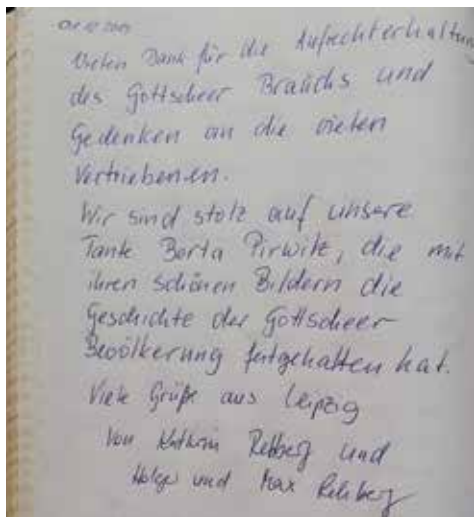 Vielen Dank für die Aufrechterhaltung
des Gottscheer Brauchs und
Gedenken an die vielen
Vertriebenen.
Wir sind stolz auf unsere
Tante Berta Pirwitz, die mit
ihren schönen Bildern die
Geschichte der Gottscheer
Bevölkerung festgehalten hat.
Viele Grüße aus Leipzig
von Rehberg und
Holger und Max Rehberg